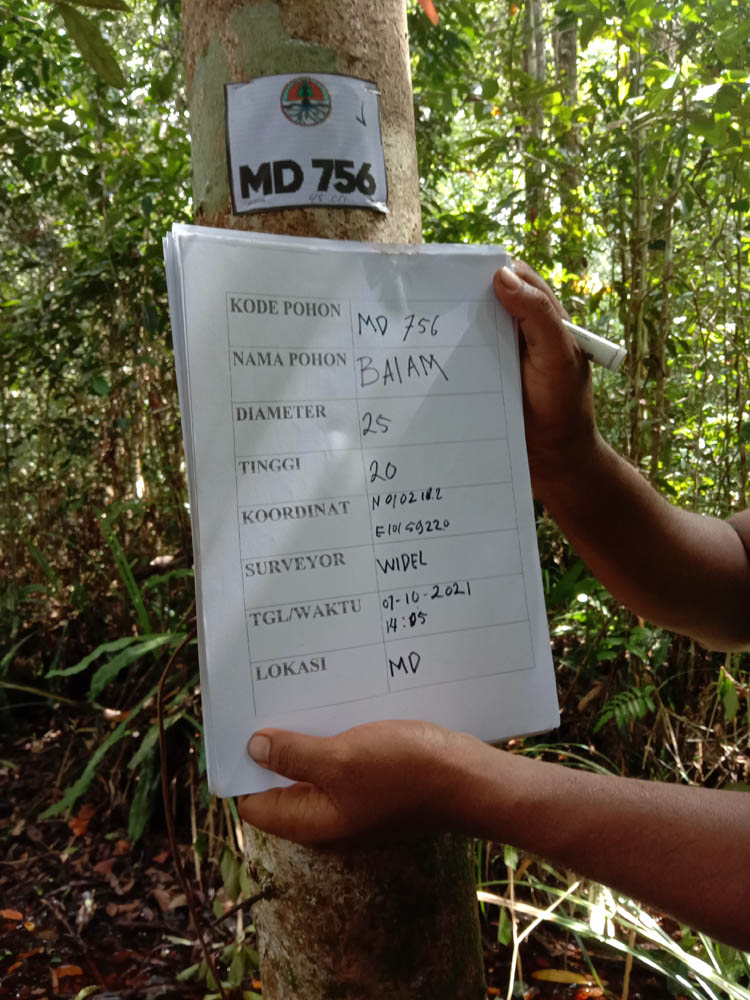 MD 756
KODE POHON MD 756
NAMA POHON BALAM
DIAMETER 25
TINGGI 20
KOORDINAT N 0102 18.2
E10159220
SURVEYOR WIDEL
TGL/WAKTU 07-10-2021
14:05
LOKASI MD